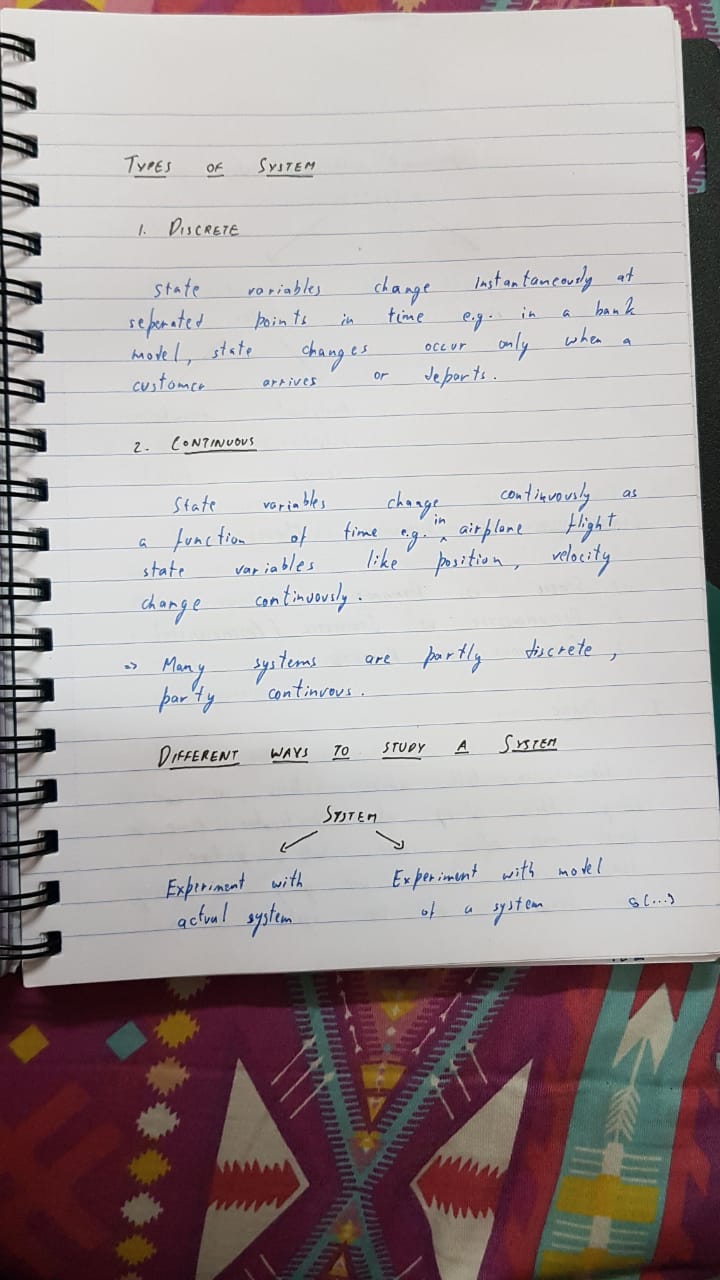 TYPES OF SYSTEM
1. DISCRETE
State variables change instantaneously at
seperated points in time e.g. in a bank
model, state changes occur only when a
customer arrives or departs.
2. CONTINUOUS
State variables change continuously as
a function of time e.g. in airplane flight
state variables like position, velocity
change continuously.
=> Many systems are partly discrete,
party continuous.
DIFFERENT WAYS TO STUDY A SYSTEM
SYSTEM
Experiment with Experiment with model
actual system of a system